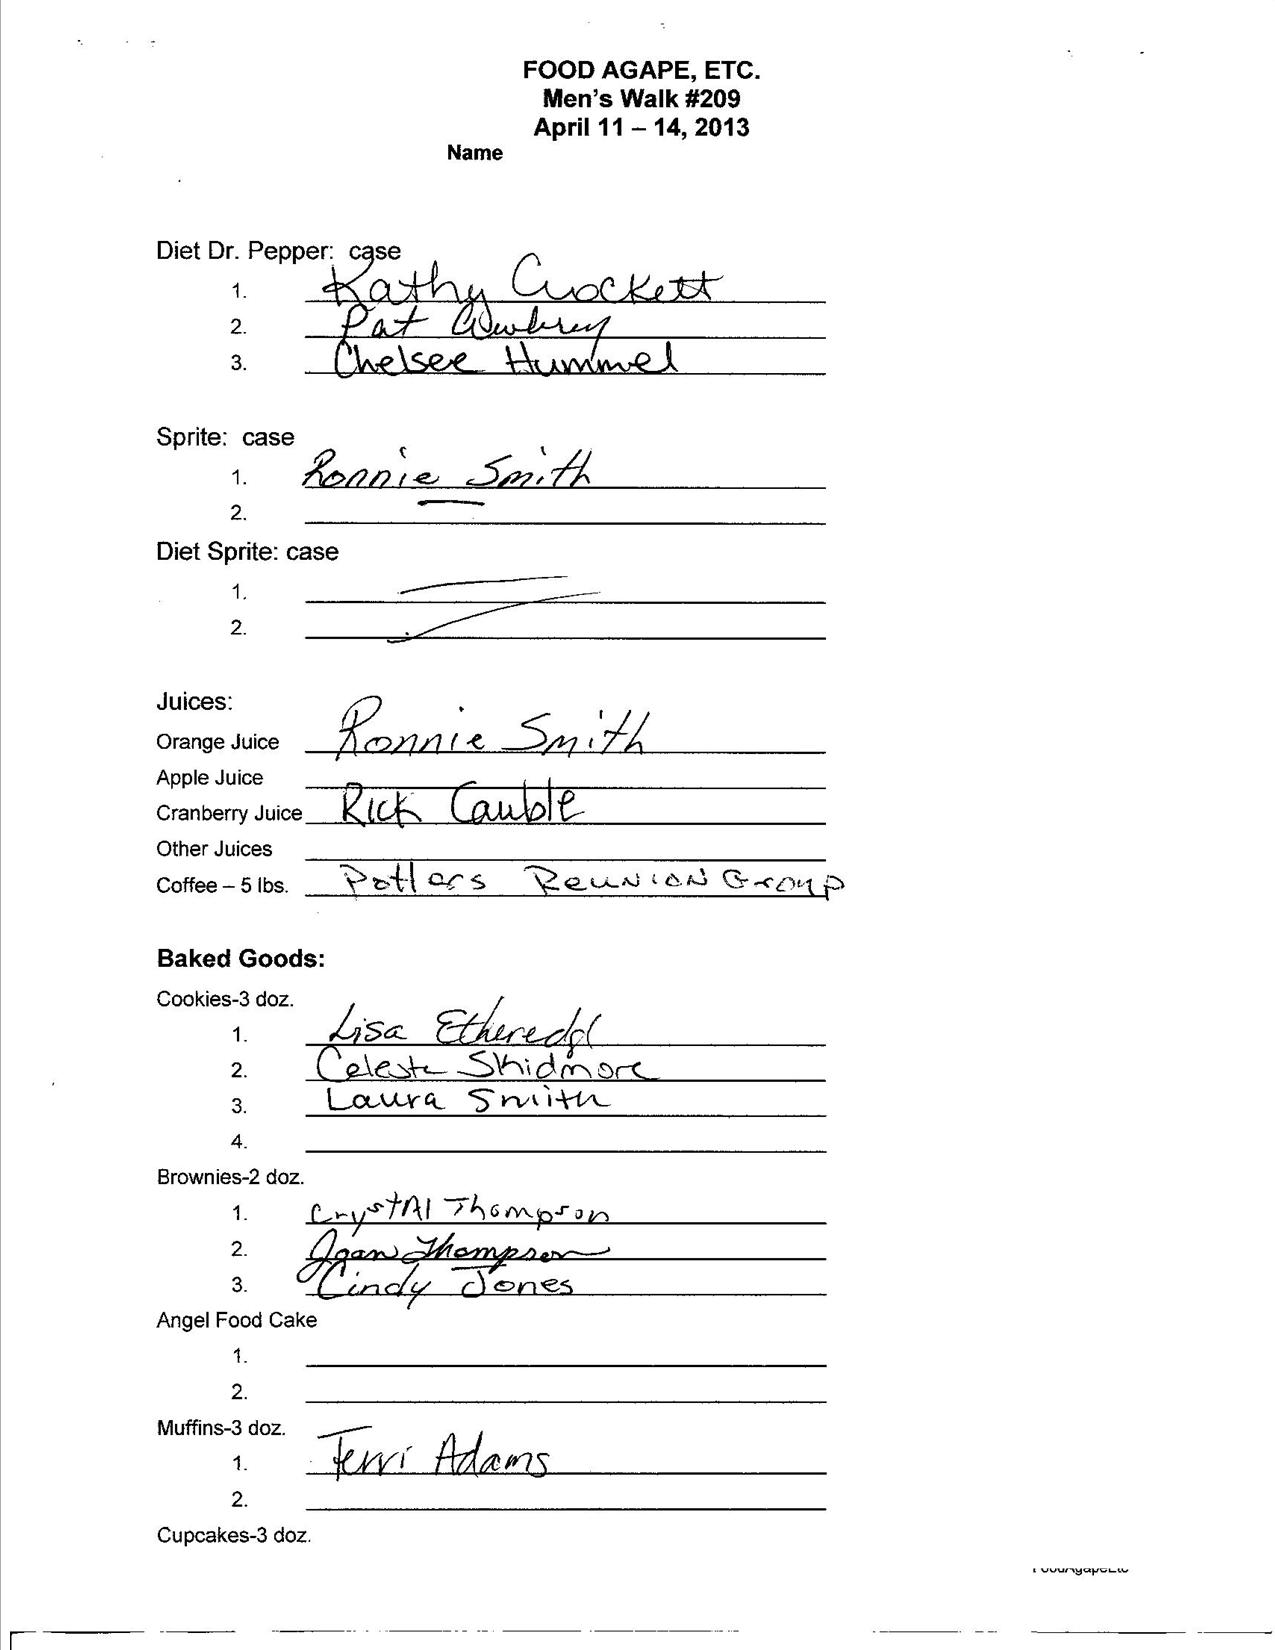 FOOD AGAPE, ETC.
Men's Walk #209
April 11 – 14, 2013
Name
Diet Dr. Pepper: case
1. Kathy Crockett
2. Pat
3. Chelsee Hummel
Sprite: case
1. Ronnie Smith
2.
Diet Sprite: case
1.
2.
Juices:
Orange Juice Ronnie Smith
Apple Juice
Cranberry Juice Rick Cauble
Other Juices
Coffee – 5 lbs. Potters Reunion Group
Baked Goods:
Cookies-3 doz.
1. Lisa
2. Celeste Skidmore
3. Laura Smith
4.
Brownies-2 doz.
1. Crystal Thompson
2. Joan Thompson
3. Cindy Jones
Angel Food Cake
1.
2.
Muffins-3 doz.
1. Terri Adams
2.
Cupcakes-3 doz.
FoodAgapeEtc